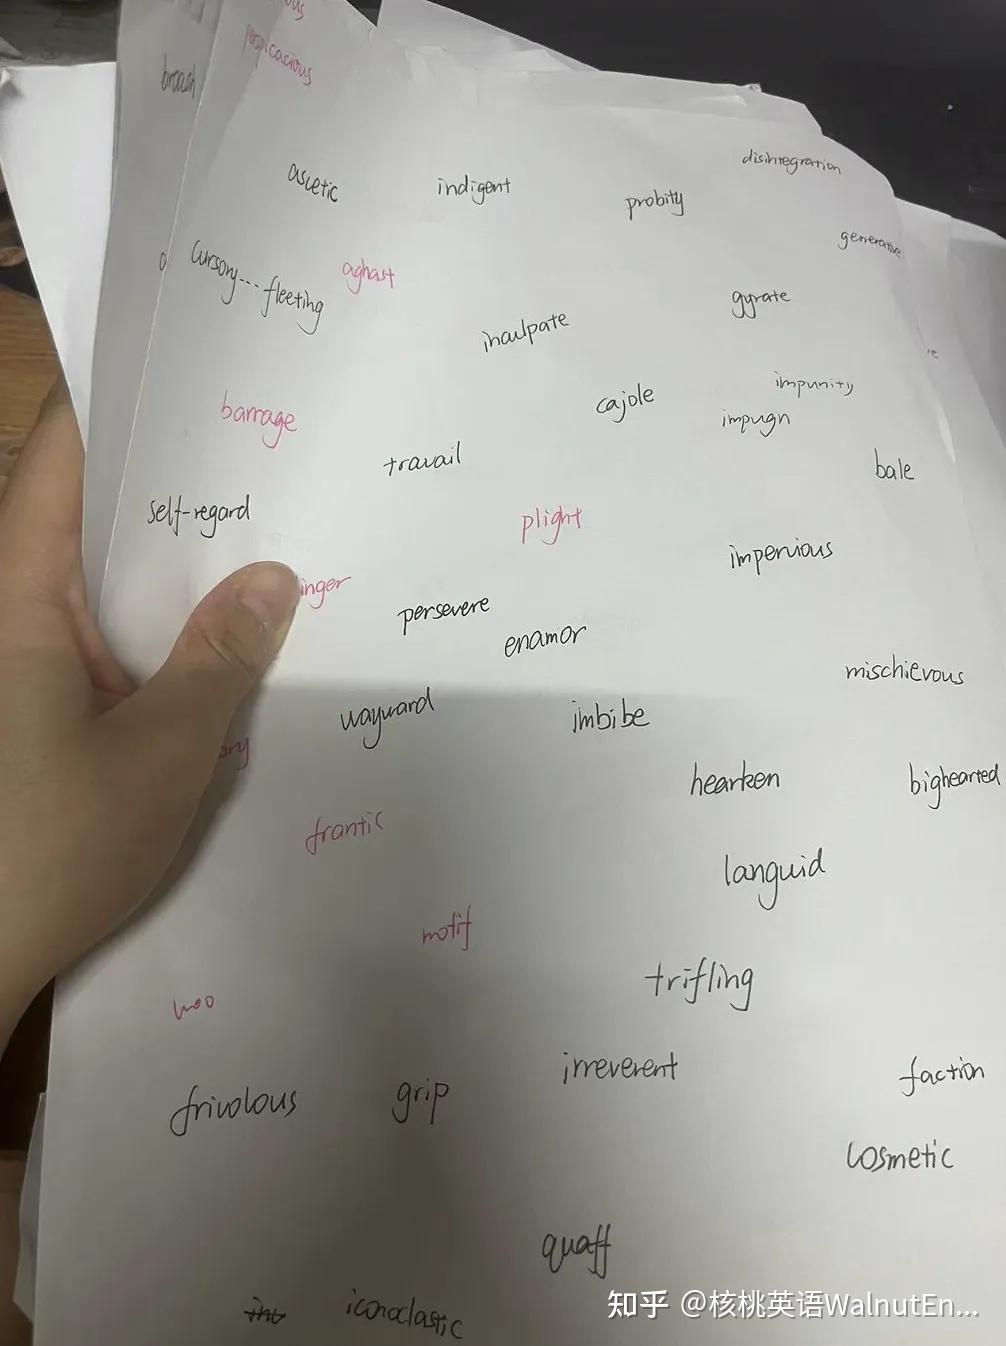 perspicacious
broach
disintegration
ascetic
indigent
probity
generative
cursory---fleeting
aghast
gyrate
inculpate
impunity
cajole
barrage
impugn
travail
bale
self-regard
plight
impervious
inger
persevere
enamor
mischievous
wayward
imbibe
ory
hearken
bighearted
frantic
languid
motif
trifling
woo
irreverent
faction
frivolous
grip
cosmetic
quaff
iconoclastic
知乎 @核桃英语WalnutEn...